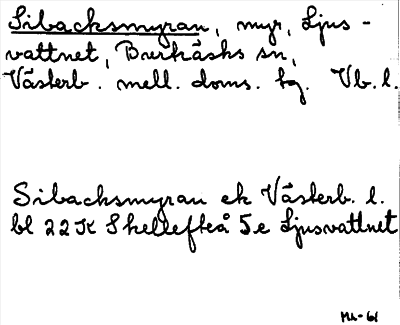 Sibacksmyran, myr, Ljus-
vattnet, Burträsks sn,
Västerb. mell. doms. tg. Vb. l.
Sibacksmyran ek Västerb. l.
bl 22K Skellefteå 5e Ljusvattnet